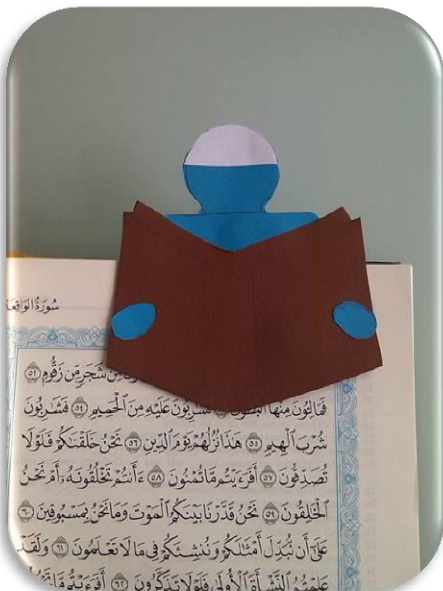 سُورَةُ الْوَاقِعَةِ
مِّن شَجَرٍ مِّن زَقُّومٍ ٥٢
فَمَالِـُٔونَ مِنْهَا الْبُطُونَ ٥٣ فَشَٰرِبُونَ عَلَيْهِ مِنَ الْحَمِيمِ ٥٤ فَشَٰرِبُونَ
شُرْبَ الْهِيمِ ٥٥ هَٰذَا نُزُلُهُمْ يَوْمَ الدِّينِ ٥٦ نَحْنُ خَلَقْنَٰكُمْ فَلَوْلَا
تُصَدِّقُونَ ٥٧ أَفَرَءَيْتُم مَّا تُمْنُونَ ٥٨ ءَأَنتُمْ تَخْلُقُونَهُۥٓ أَمْ نَحْنُ
الْخَٰلِقُونَ ٥٩ نَحْنُ قَدَّرْنَا بَيْنَكُمُ الْمَوْتَ وَمَا نَحْنُ بِمَسْبُوقِينَ ٦٠
عَلَىٰٓ أَن نُّبَدِّلَ أَمْثَٰلَكُمْ وَنُنشِئَكُمْ فِى مَا لَا تَعْلَمُونَ ٦١ وَلَقَدْ
عَلِمْتُمُ النَّشْأَةَ الْأُولَىٰ فَلَوْلَا تَذَكَّرُونَ ٦٢ أَفَرَءَيْتُم مَّا تَحْرُثُونَ